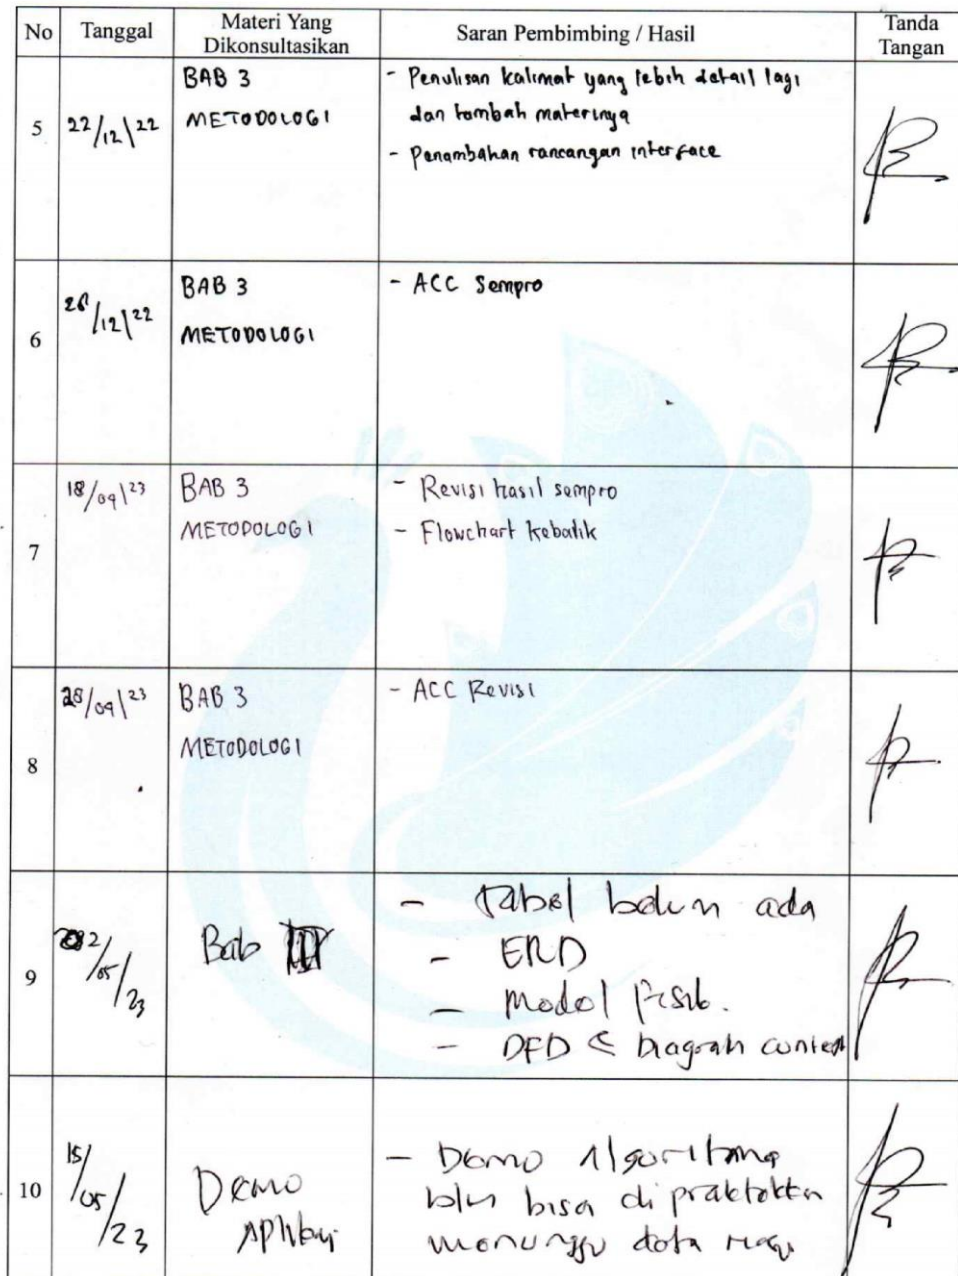 No Tanggal Materi Yang Dikonsultasikan Saran Pembimbing / Hasil Tanda Tangan
5 22/12/22 BAB 3 METODOLOGI
- Penulisan kalimat yang lebih detail lagi
dan tambah materinya
- Penambahan rancangan interface
6 26/12/22 BAB 3 METODOLOGI
- ACC Sempro
7 18/04/23 BAB 3 METODOLOGI
- Revisi hasil sempro
- Flowchart kebalik
8 28/04/23 BAB 3 METODOLOGI
- ACC Revisi
9 02/05/23 Bab III
- tabel belum ada
- ERD
- Model fisik.
- DFD & Diagram context
10 15/05/23 Demo Aplikasi
- Demo Algoritma
blm bisa di praktekkan
menunggu data